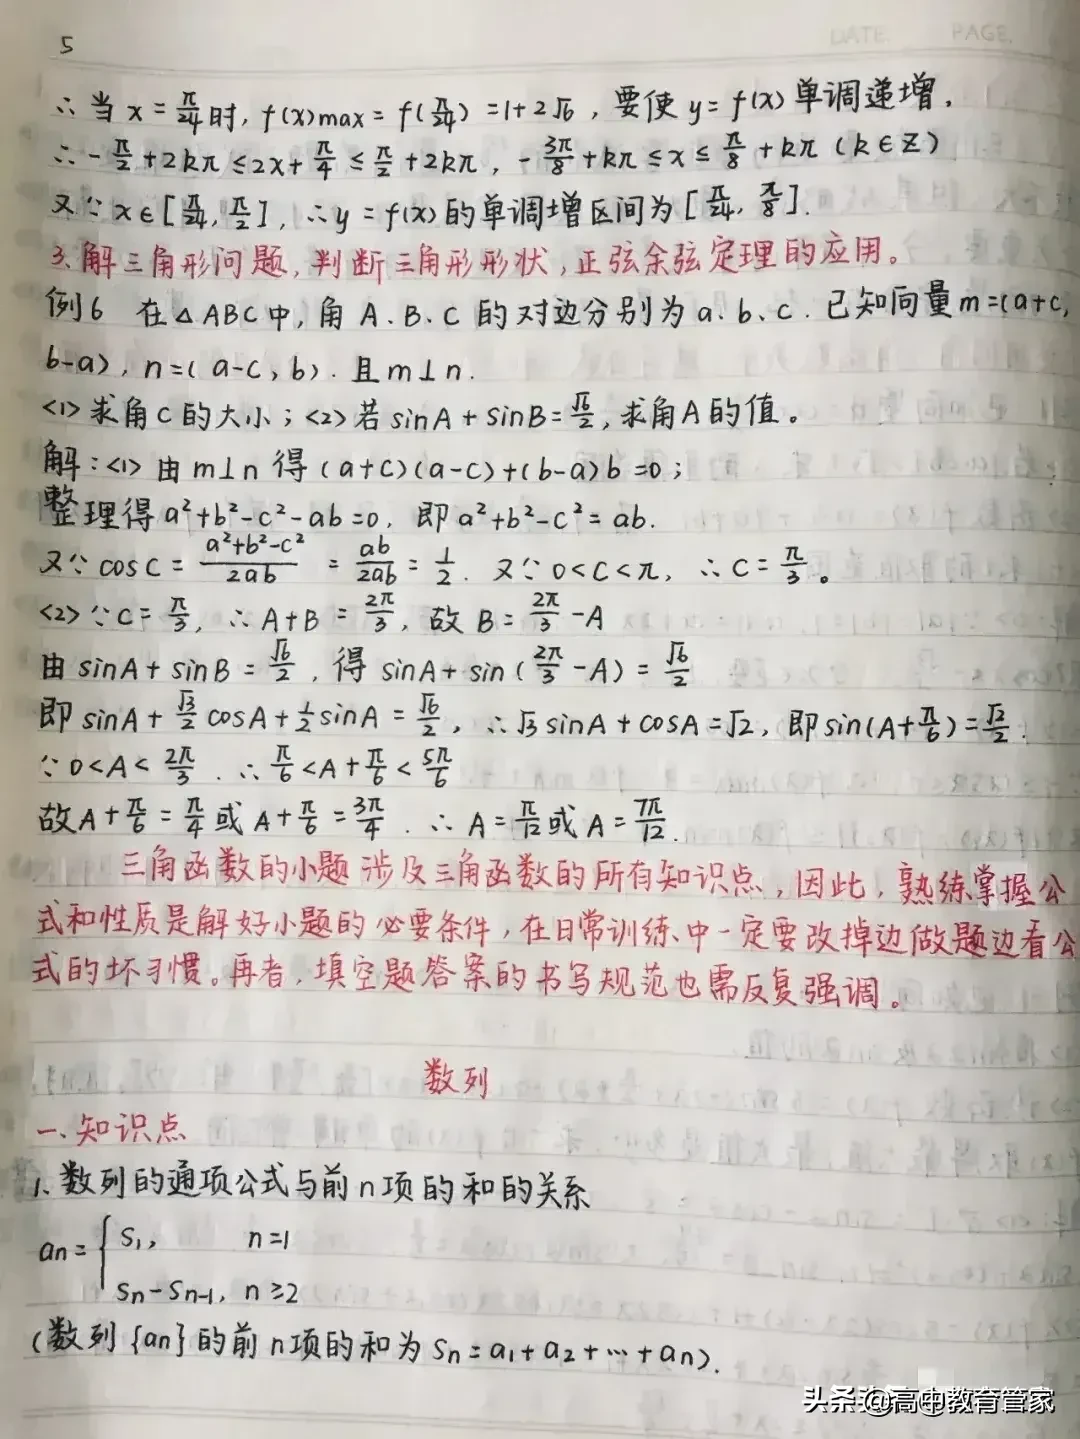 DATE. PAGE.
5
∴当x=π/24时,f(x)max=f(π/24)=1+2√6,要使y=f(x)单调递增,
∴-π/2+2kπ≤2x+π/4≤π/2+2kπ,-3π/8+kπ≤x≤π/8+kπ(k∈Z)
又∵x∈[π/24,π/2],∴y=f(x)的单调增区间为[π/24,π/8].
3.解三角形问题,判断三角形形状,正弦余弦定理的应用。
例6 在△ABC中,角A、B、C的对边分别为a、b、c.已知向量m=(a+c,
b-a),n=(a-c,b).且m⊥n.
<1>求角C的大小;<2>若sinA+sinB=√6/2,求角A的值。
解:<1>由m⊥n得(a+c)(a-c)+(b-a)b=0;
整理得a²+b²-c²-ab=0,即a²+b²-c²=ab.
又∵cosC=(a²+b²-c²)/2ab=ab/2ab=1/2.又∵0<C<π,∴C=π/3。
<2>∵C=π/3,∴A+B=2π/3,故B=2π/3-A
由sinA+sinB=√6/2,得sinA+sin(2π/3-A)=√6/2
即sinA+√3/2cosA+1/2sinA=√6/2,∴√3sinA+cosA=√2,即sin(A+π/6)=√2/2.
∵0<A<2π/3.∴π/6<A+π/6<5π/6
故A+π/6=π/4或A+π/6=3π/4.∴A=π/12或A=7π/12.
三角函数的小题涉及三角函数的所有知识点,因此,熟练掌握公
式和性质是解好小题的必要条件,在日常训练中一定要改掉边做题边看公
式的坏习惯。再者,填空题答案的书写规范也需反复强调。
数列
一、知识点
1.数列的通项公式与前n项的和的关系
an={S1, n=1
Sn-Sn-1, n≥2
(数列{an}的前n项的和为Sn=a1+a2+…+an).
头条@高中教育管家